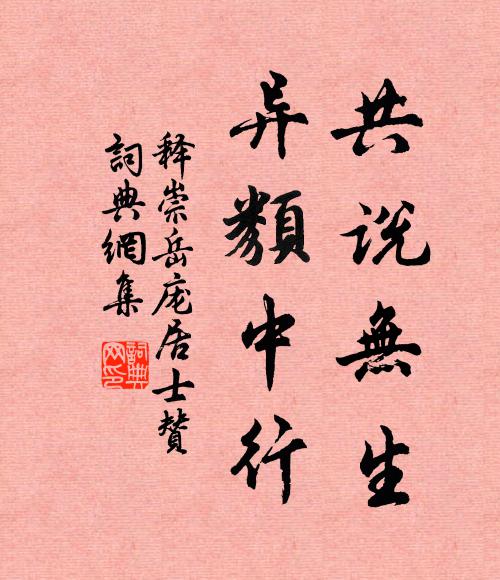 共説無生
异類中行
释崇岳庞居士贊
詞典網集
詞典网印